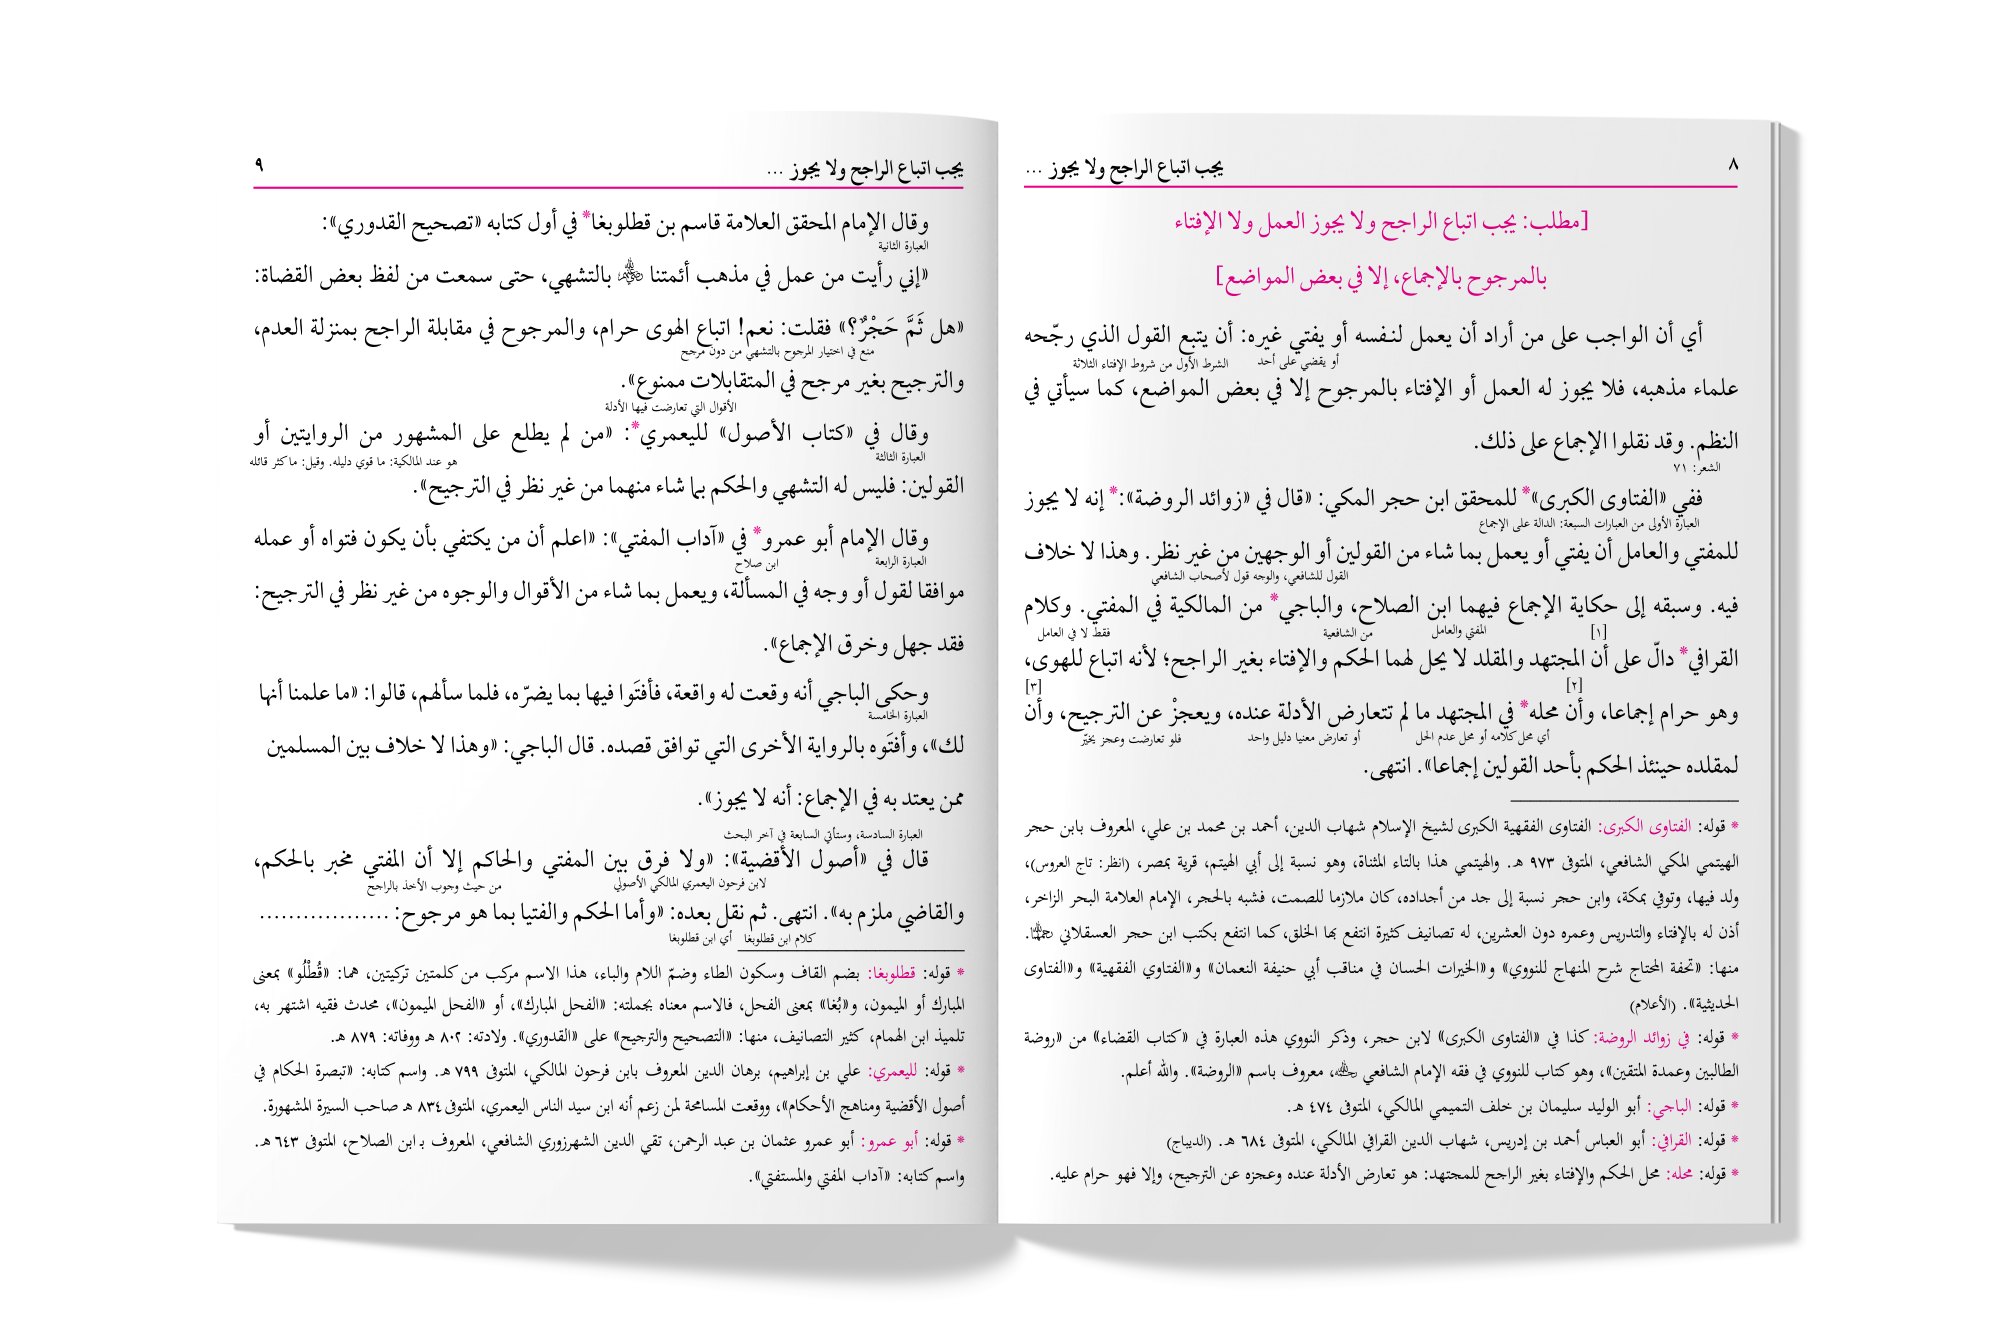 ٨
يجب اتباع الراجح ولا يجوز ...
[مطلب: يجب اتباع الراجح ولا يجوز العمل ولا الإفتاء
بالمرجوح بالإجماع، إلا في بعض المواضع]
أي أن الواجب على من أراد أن يعمل لنفسه أو يفتي غيره: أن يتبع القول الذي رجّحه
أو يقضي على أحد
الشرط الأول من شروط الإفتاء الثلاثة
علماء مذهبه، فلا يجوز له العمل أو الإفتاء بالمرجوح إلا في بعض المواضع، كما سيأتي في
النظم. وقد نقلوا الإجماع على ذلك.
الشعر: ٧١
ففي «الفتاوى الكبرى»* للمحقق ابن حجر المكي: «قال في «زوائد الروضة»:* إنه لا يجوز
العبارة الأولى من العبارات السبعة: الدالة على الإجماع
للمفتي والعامل أن يفتي أو يعمل بما شاء من القولين أو الوجهين من غير نظر. وهذا لا خلاف
القول للشافعي، والوجه قول لأصحاب الشافعي
فيه. وسبقه إلى حكاية الإجماع فيهما ابن الصلاح، والباجي* من المالكية في المفتي. وكلام
[١]
المفتي والعامل
من الشافعية
فقط لا في العامل
القرافي* دالّ على أن المجتهد والمقلد لا يحل لهما الحكم والإفتاء بغير الراجح؛ لأنه اتباع للهوى،
[٢]
[٣]
وهو حرام إجماعا، وأن محله* في المجتهد ما لم تتعارض الأدلة عنده، ويعجزْ عن الترجيح، وأن
أي محل كلامه أو محل عدم الحل
أو تعارض معنيا دليل واحد
فلو تعارضت وعجز يخيّر
لمقلده حينئذ الحكم بأحد القولين إجماعا». انتهى.
* قوله: الفتاوى الكبرى: الفتاوى الفقهية الكبرى لشيخ الإسلام شهاب الدين، أحمد بن محمد بن علي، المعروف بابن حجر
الهيتمي المكي الشافعي، المتوفى ٩٧٣ هـ. والهيتمي هذا بالتاء المثناة، وهو نسبة إلى أبي الهيتم، قرية بمصر، (انظر: تاج العروس)،
ولد فيها، وتوفي بمكة، وابن حجر نسبة إلى جد من أجداده، كان ملازما للصمت، فشبه بالحجر، الإمام العلامة البحر الزاخر،
أذن له بالإفتاء والتدريس وعمره دون العشرين، له تصانيف كثيرة انتفع بها الخلق، كما انتفع بكتب ابن حجر العسقلاني.
منها: «تحفة المحتاج شرح المنهاج للنووي» و«الخيرات الحسان في مناقب أبي حنيفة النعمان» و«الفتاوي الفقهية» و«الفتاوى
الحديثية». (الأعلام)
* قوله: في زوائد الروضة: كذا في «الفتاوى الكبرى» لابن حجر، وذكر النووي هذه العبارة في «كتاب القضاء» من «روضة
الطالبين وعمدة المتقين»، وهو كتاب للنووي في فقه الإمام الشافعي، معروف باسم «الروضة». والله أعلم.
* قوله: الباجي: أبو الوليد سليمان بن خلف التميمي المالكي، المتوفى ٤٧٤ هـ.
* قوله: القرافي: أبو العباس أحمد بن إدريس، شهاب الدين القرافي المالكي، المتوفى ٦٨٤ هـ. (الديباج)
* قوله: محله: محل الحكم والإفتاء بغير الراجح للمجتهد: هو تعارض الأدلة عنده وعجزه عن الترجيح، وإلا فهو حرام عليه.
يجب اتباع الراجح ولا يجوز ...
٩
وقال الإمام المحقق العلامة قاسم بن قطلوبغا* في أول كتابه «تصحيح القدوري»:
العبارة الثانية
«إني رأيت من عمل في مذهب أئمتنا ﷺ بالتشهي، حتى سمعت من لفظ بعض القضاة:
«هل ثَمَّ حَجْرٌ؟» فقلت: نعم! اتباع الهوى حرام، والمرجوح في مقابلة الراجح بمنزلة العدم،
منع في اختيار المرجوح بالتشهي من دون مرجح
والترجيح بغير مرجح في المتقابلات ممنوع».
الأقوال التي تعارضت فيها الأدلة
وقال في «كتاب الأصول» لليعمري*: «من لم يطلع على المشهور من الروايتين أو
العبارة الثالثة
هو عند المالكية: ما قوي دليله. وقيل: ما كثر قائله
القولين: فليس له التشهي والحكم بما شاء منهما من غير نظر في الترجيح».
وقال الإمام أبو عمرو* في «آداب المفتي»: «اعلم أن من يكتفي بأن يكون فتواه أو عمله
العبارة الرابعة
ابن صلاح
موافقا لقول أو وجه في المسألة، ويعمل بما شاء من الأقوال والوجوه من غير نظر في الترجيح:
فقد جهل وخرق الإجماع».
وحكى الباجي أنه وقعت له واقعة، فأفتَوا فيها بما يضرّه، فلما سألهم، قالوا: «ما علمنا أنها
العبارة الخامسة
لك»، وأفتَوه بالرواية الأخرى التي توافق قصده. قال الباجي: «وهذا لا خلاف بين المسلمين
ممن يعتد به في الإجماع: أنه لا يجوز».
العبارة السادسة، وستأتي السابعة في آخر البحث
قال في «أصول الأقضية»: «ولا فرق بين المفتي والحاكم إلا أن المفتي مخبر بالحكم،
لابن فرحون اليعمري المالكي الأصولي
من حيث وجوب الأخذ بالراجح
والقاضي ملزم به». انتهى. ثم نقل بعده: «وأما الحكم والفتيا بما هو مرجوح: ..................
كلام ابن قطلوبغا
أي ابن قطلوبغا
* قوله: قطلوبغا: بضم القاف وسكون الطاء وضمّ اللام والباء، هذا الاسم مركب من كلمتين تركيتين، هما: «قُطْلُو» بمعنى
المبارك أو الميمون، و«بُغا» بمعنى الفحل، فالاسم معناه بجملته: «الفحل المبارك»، أو «الفحل الميمون»، محدث فقيه اشتهر به،
تلميذ ابن الهمام، كثير التصانيف، منها: «التصحيح والترجيح» على «القدوري». ولادته: ٨٠٢ هـ ووفاته: ٨٧٩ هـ.
* قوله: لليعمري: علي بن إبراهيم، برهان الدين المعروف بابن فرحون المالكي، المتوفى ٧٩٩ هـ. واسم كتابه: «تبصرة الحكام في
أصول الأقضية ومناهج الأحكام»، ووقعت المسامحة لمن زعم أنه ابن سيد الناس اليعمري، المتوفى ٨٣٤ هـ صاحب السيرة المشهورة.
* قوله: أبو عمرو: أبو عمرو عثمان بن عبد الرحمن، تقي الدين الشهرزوري الشافعي، المعروف بـ ابن الصلاح، المتوفى ٦٤٣ هـ.
واسم كتابه: «آداب المفتي والمستفتي».